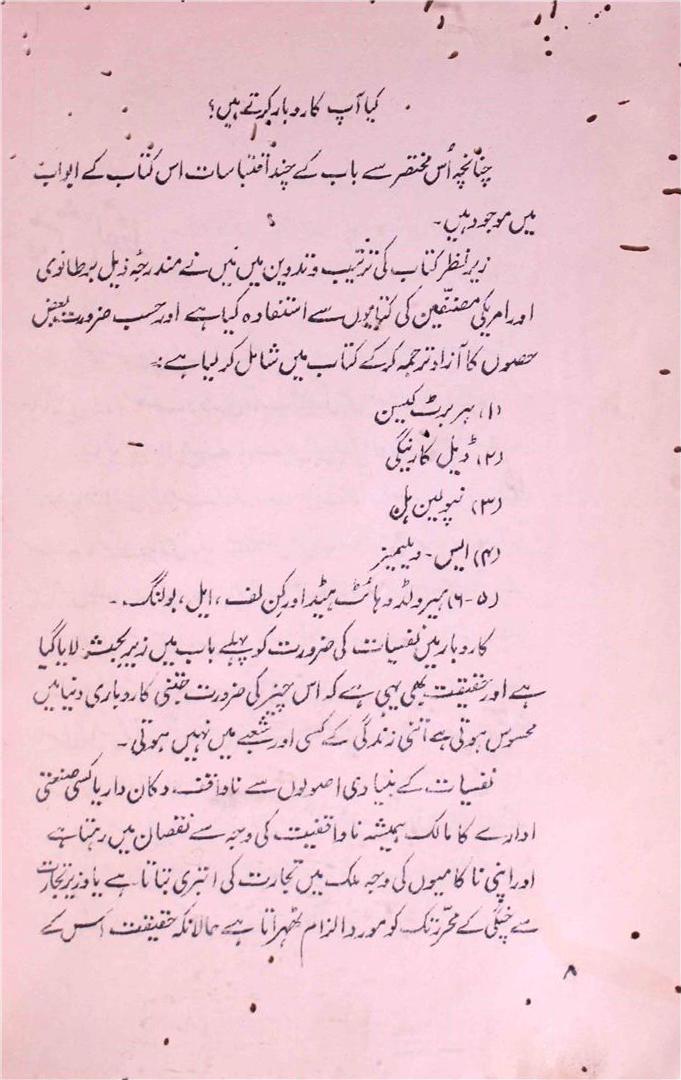 کیا آپ کاروبار کرتے ہیں؟
چنانچہ اُس مختصر سے باب کے چند اقتباسات اس کتاب کے ابواب
میں موجود ہیں۔
زیرِ نظر کتاب کی ترتیب و تدوین میں میں نے مندرجہ ذیل برطانوی
اور امریکی مصنّفین کی کتابوں سے استفادہ کیا ہے اور حسب ضرورت بعض
حصوں کا آزاد ترجمہ کر کے کتاب میں شامل کر لیا ہے :۔
(۱) ہربرٹ کیسن
(۲) ڈیل کارنیگی
(۳) نپولین ہل
(۴) ایس۔ ولیمیز
(۵-۶) ہیرولڈ وہائٹ ہیڈ اور کِن لف، ایل، بولنگ۔
کاروبار میں نفسیات کی ضرورت کو پہلے باب میں زیر بحث لایا گیا
ہے اور حقیقت بھی یہی ہے کہ اس چیز کی ضرورت جتنی کاروباری دنیا میں
محسوس ہوتی ہے اتنی زندگی کے کسی اور شعبے میں نہیں ہوتی۔
نفسیات کے بنیادی اصولوں سے ناواقف، دکان دار یا کسی صنعتی
ادارے کا مالک ہمیشہ ناواقفیت کی وجہ سے نقصان میں رہتا ہے
اور اپنی ناکامیوں کی وجہ ملک میں تجارت کی ابتری بتاتا ہے یا وزیرِ تجارت
سے چپڑی کے محرّر تک کو مورد الزام ٹھہراتا ہے حالانکہ حقیقت اس کے
۸